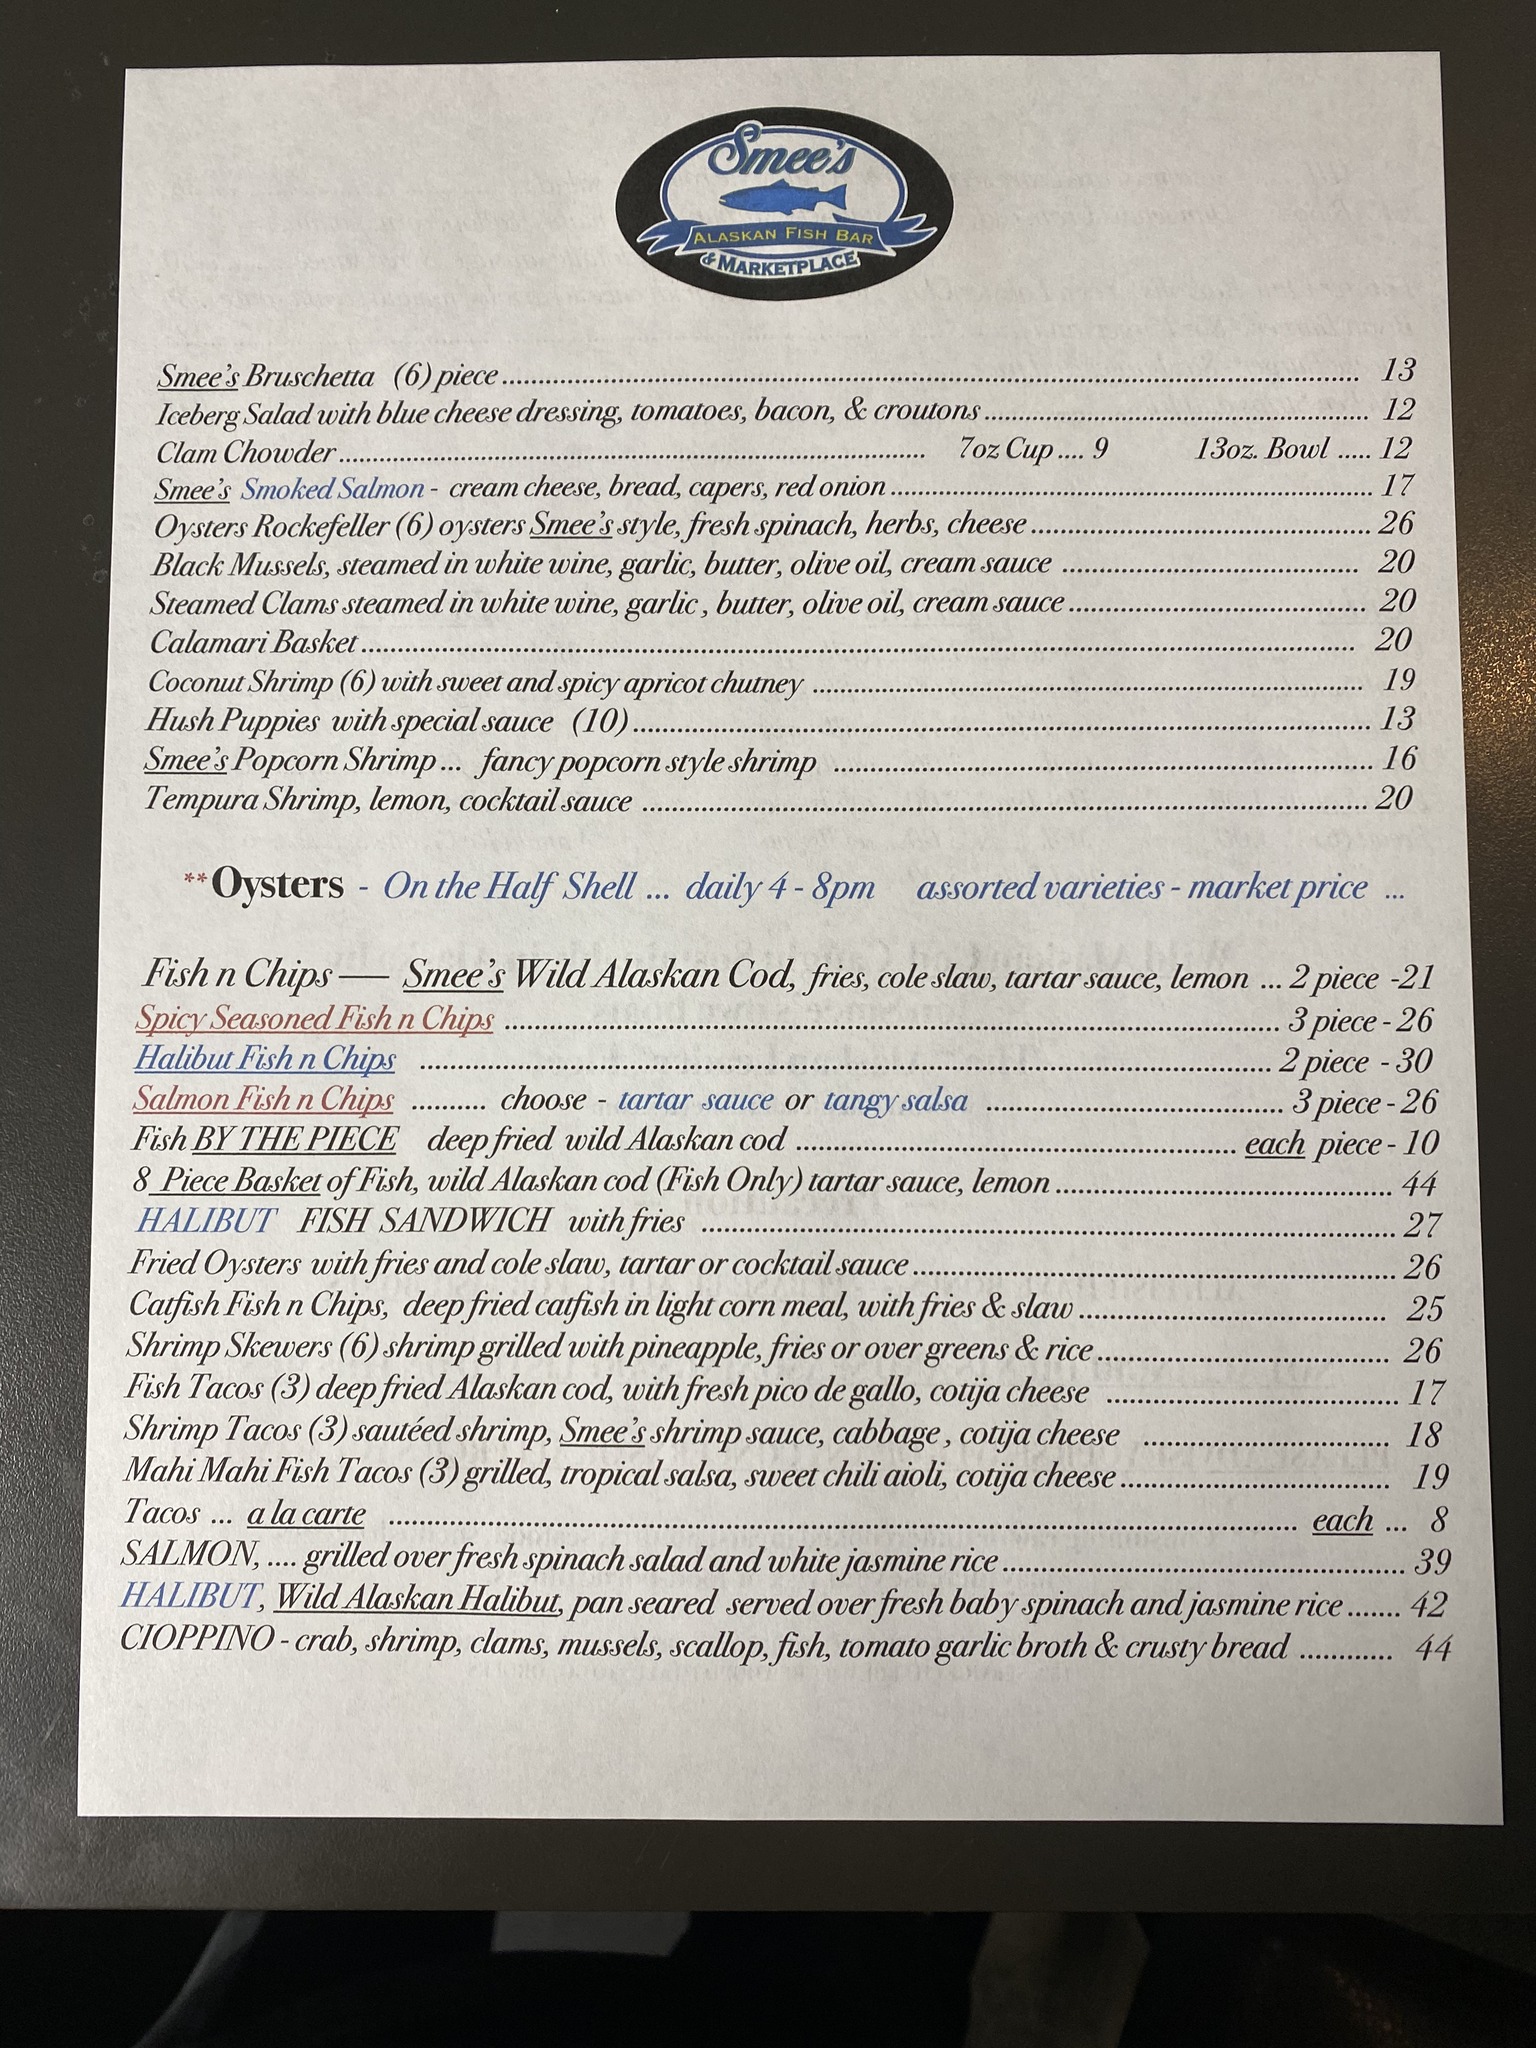 Smee's
ALASKAN FISH BAR
& MARKETPLACE
Smee's Bruschetta (6) piece ........ 13
Iceberg Salad with blue cheese dressing, tomatoes, bacon, & croutons ........ 12
Clam Chowder ........ 7oz Cup .... 9 13oz. Bowl ..... 12
Smee's Smoked Salmon - cream cheese, bread, capers, red onion ........ 17
Oysters Rockefeller (6) oysters Smee's style, fresh spinach, herbs, cheese ........ 26
Black Mussels, steamed in white wine, garlic, butter, olive oil, cream sauce ........ 20
Steamed Clams steamed in white wine, garlic , butter, olive oil, cream sauce ........ 20
Calamari Basket ........ 20
Coconut Shrimp (6) with sweet and spicy apricot chutney ........ 19
Hush Puppies with special sauce (10) ........ 13
Smee's Popcorn Shrimp ... fancy popcorn style shrimp ........ 16
Tempura Shrimp, lemon, cocktail sauce ........ 20
**Oysters - On the Half Shell ... daily 4 - 8pm assorted varieties - market price ...
Fish n Chips — Smee's Wild Alaskan Cod, fries, cole slaw, tartar sauce, lemon ... 2 piece -21
Spicy Seasoned Fish n Chips ........ 3 piece - 26
Halibut Fish n Chips ........ 2 piece - 30
Salmon Fish n Chips .......... choose - tartar sauce or tangy salsa ........ 3 piece - 26
Fish BY THE PIECE deep fried wild Alaskan cod ........ each piece - 10
8 Piece Basket of Fish, wild Alaskan cod (Fish Only) tartar sauce, lemon ........ 44
HALIBUT FISH SANDWICH with fries ........ 27
Fried Oysters with fries and cole slaw, tartar or cocktail sauce ........ 26
Catfish Fish n Chips, deep fried catfish in light corn meal, with fries & slaw ........ 25
Shrimp Skewers (6) shrimp grilled with pineapple, fries or over greens & rice ........ 26
Fish Tacos (3) deep fried Alaskan cod, with fresh pico de gallo, cotija cheese ........ 17
Shrimp Tacos (3) sautéed shrimp, Smee's shrimp sauce, cabbage , cotija cheese ........ 18
Mahi Mahi Fish Tacos (3) grilled, tropical salsa, sweet chili aioli, cotija cheese ........ 19
Tacos ... a la carte ........ each ... 8
SALMON, .... grilled over fresh spinach salad and white jasmine rice ........ 39
HALIBUT, Wild Alaskan Halibut, pan seared served over fresh baby spinach and jasmine rice ....... 42
CIOPPINO - crab, shrimp, clams, mussels, scallop, fish, tomato garlic broth & crusty bread ............ 44